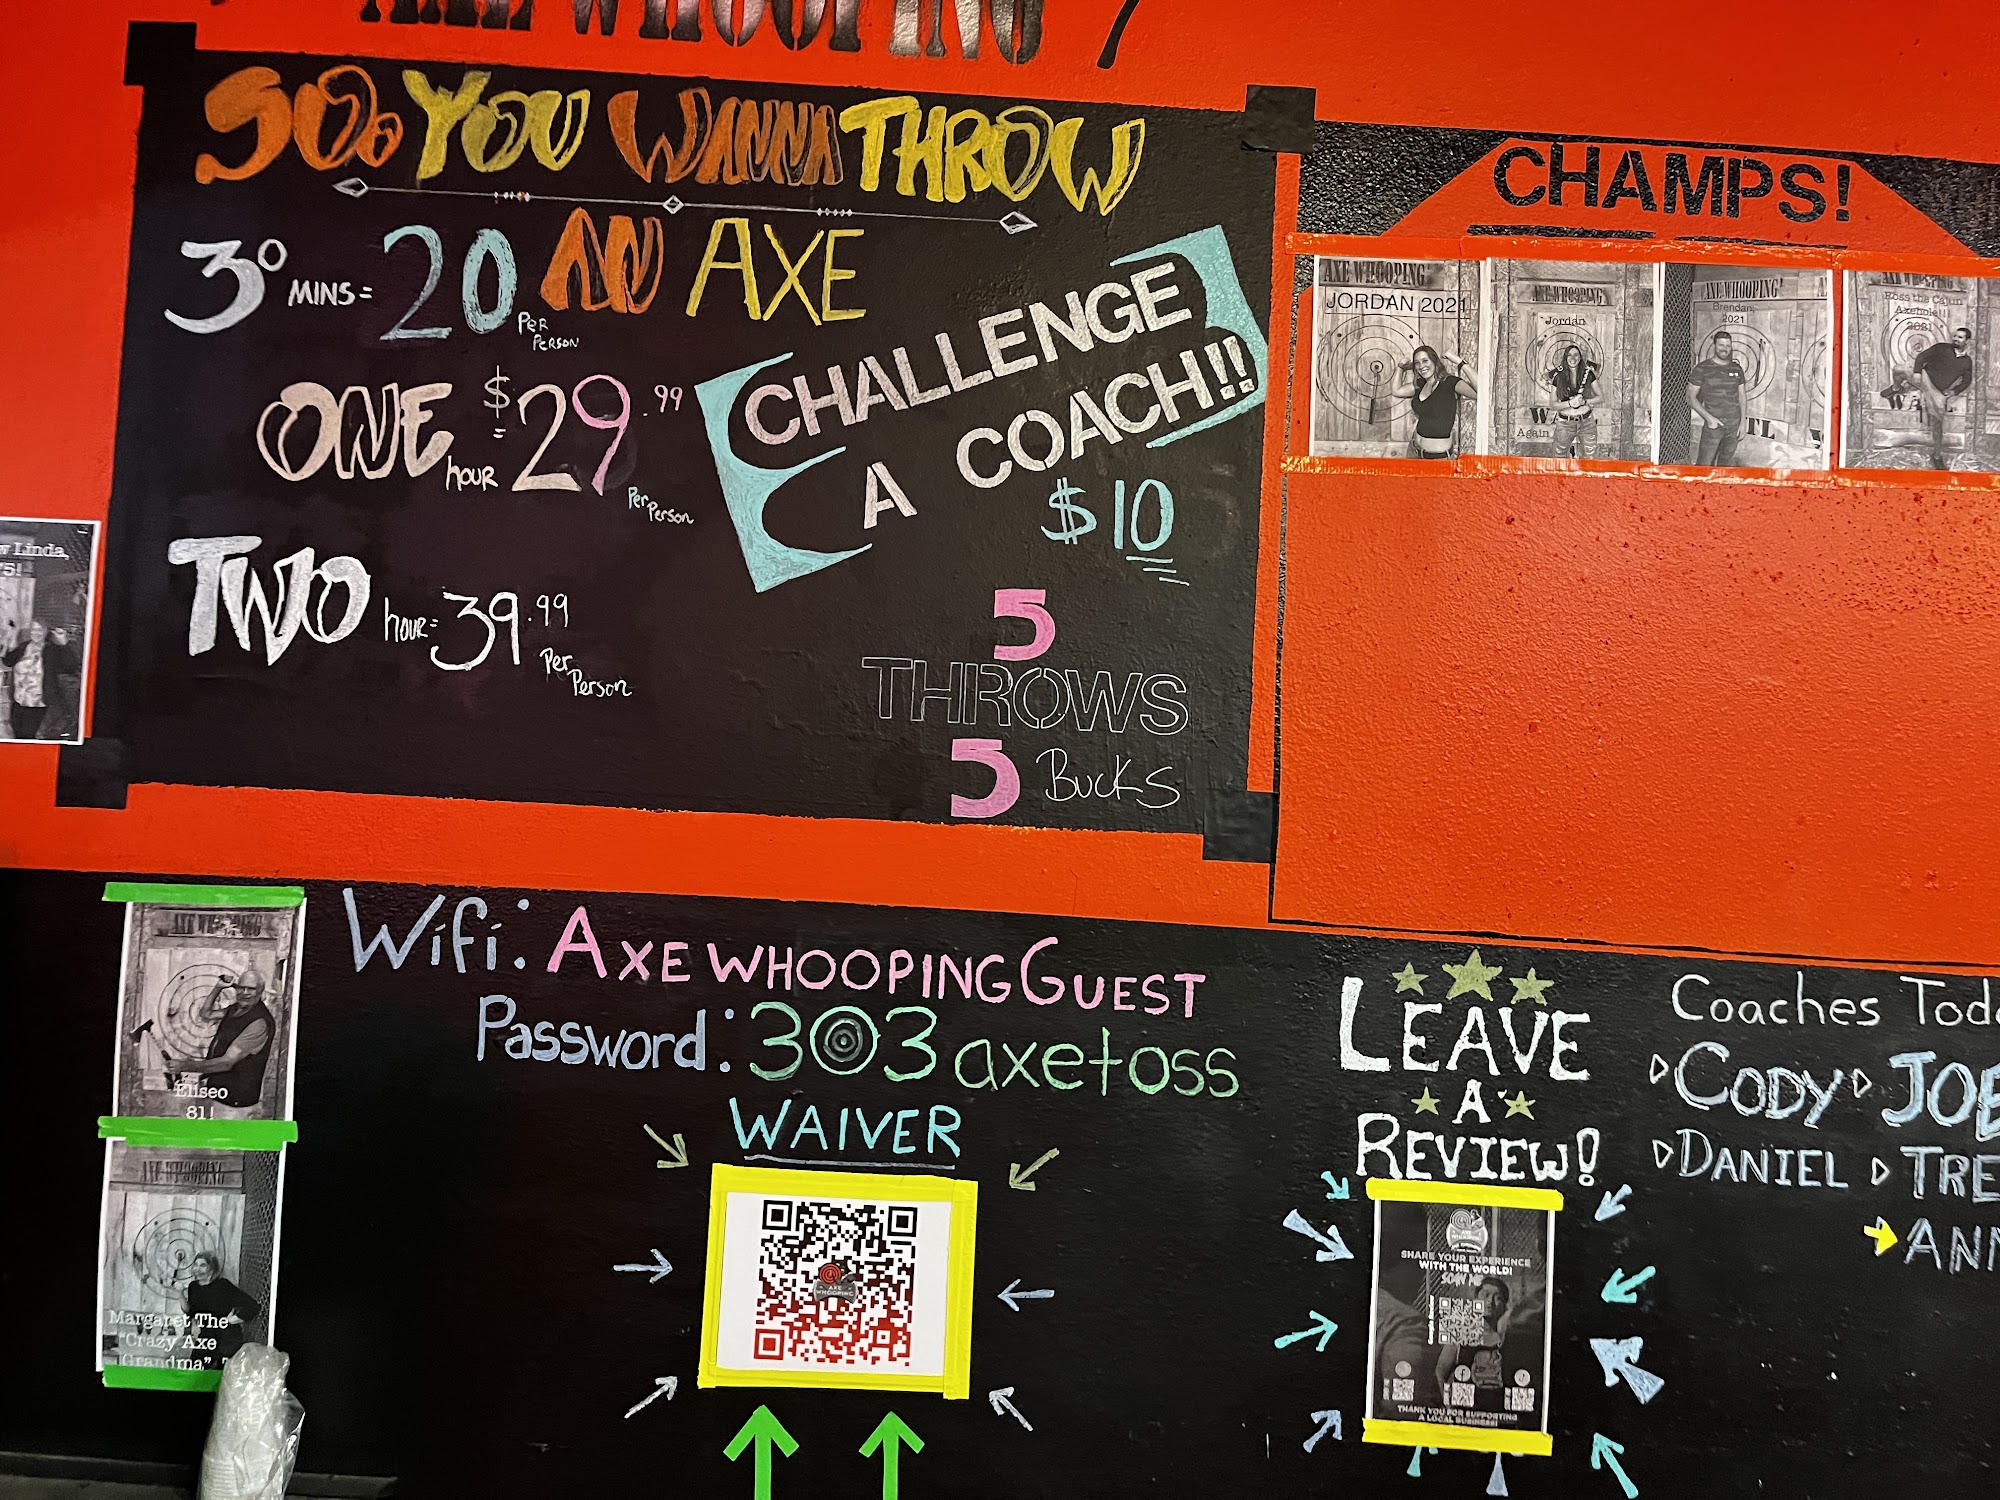 AXE WHOOPING
SOo YOU WANNA THROW
AN AXE
30 MINS = 20 Per Person
ONE hour = $29.99 Per Person
TWO hour = 39.99 Per Person
CHALLENGE
A COACH!!
$10
5
THROWS
5 Bucks
CHAMPS!
AXE WHOOPING!
JORDAN 2021
AXE WHOOPING
Jordan
Again
AXE WHOOPING!
Brendan,
2021
AXE WHOOPING
Ross the Cajun
Axehole!!
2021
Linda,
Wifi: AXEWHOOPINGGUEST
Password: 303axetoss
WAIVER
AXE
WHOOPING
LEAVE
A
REVIEW!
SHARE YOUR EXPERIENCE
WITH THE WORLD!
SCAN ME
THANK YOU FOR SUPPORTING
A LOCAL BUSINESS!
Coaches
CODY
DANIEL
AXE WHOOPING
Eliseo
81!
AXE WHOOPING
Margaret The
"Crazy Axe
Grandma",